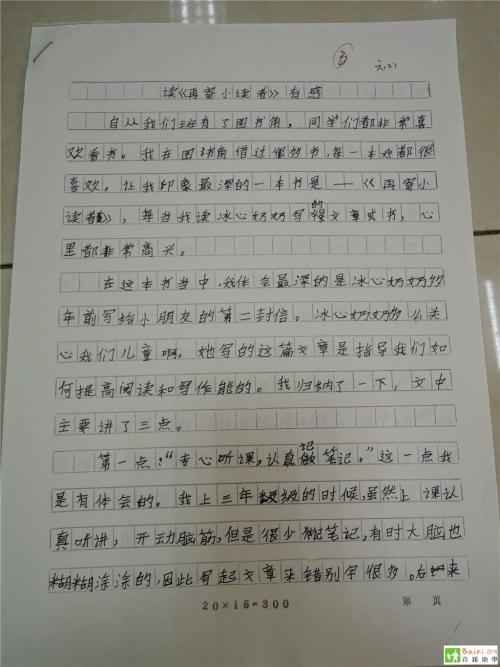 ③
六(2)
读《再寄小读者》有感
自从我们班有了图书角，同学们都非常喜
欢看书。我在图书角借过很多书，每一本我都很
喜欢，让我印象最深的一本书是——《再寄小
读者》，每当我读冰心奶奶写的文章或书，心
里都非常高兴。
在这本书当中，我体会最深的是冰心奶奶多
年前写给小朋友的第二封信。冰心奶奶多么关
心我们儿童啊，她写的这篇文章是指导我们如
何提高阅读和写作能的。我归纳了一下，文中
主要讲了三点。
第一点："专心听课，认真记笔记。"这一点我
是有体会的。我上三年级的时候，虽然上课认
真听讲，开动脑筋，但是很少做笔记，有时大脑也
糊糊涂涂的，因此写起文章来错别字很多。后来
20×15=300
第 页
Baixi.org
百蹊治学